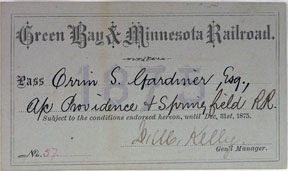 Green Bay & Minnesota Railroad.
1875
Pass Orrin S. Gardiner, Esq,
A/c Providence & Springfield R.R.
Subject to the conditions endorsed hereon, until Dec. 31st, 1875.
Kelley
No. 57 Gen'l Manager.